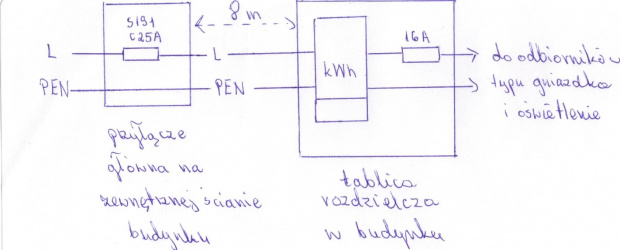 S191
C25A
8 m
L
L
PEN
PEN
kWh
16A
do odbiorników
typu gniazdka
i oświetlenie
przyłącze
główna na
zewnętrznej ścianie
budynku
tablica
rozdzielcza
w budynku